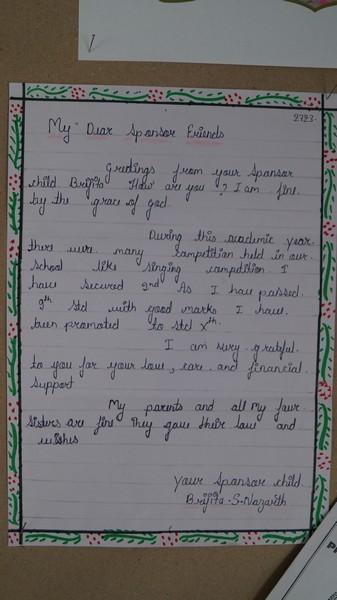 2723.
My Dear Sponsor Friends
Greetings from your Sponsor
child Brijita How are you ? I am fine
by the grace of god
During this academic year
there were many competition held in our
school like singing competition I
have secured 2nd As I have passed
9th std with good marks I have
been promoted to std Xth.
I am very grateful
to you for your love, care and financial
support
My parents and all my four
sisters are fine They gave their love and
wishes
your sponsor child
Brijita .S. Nazarith